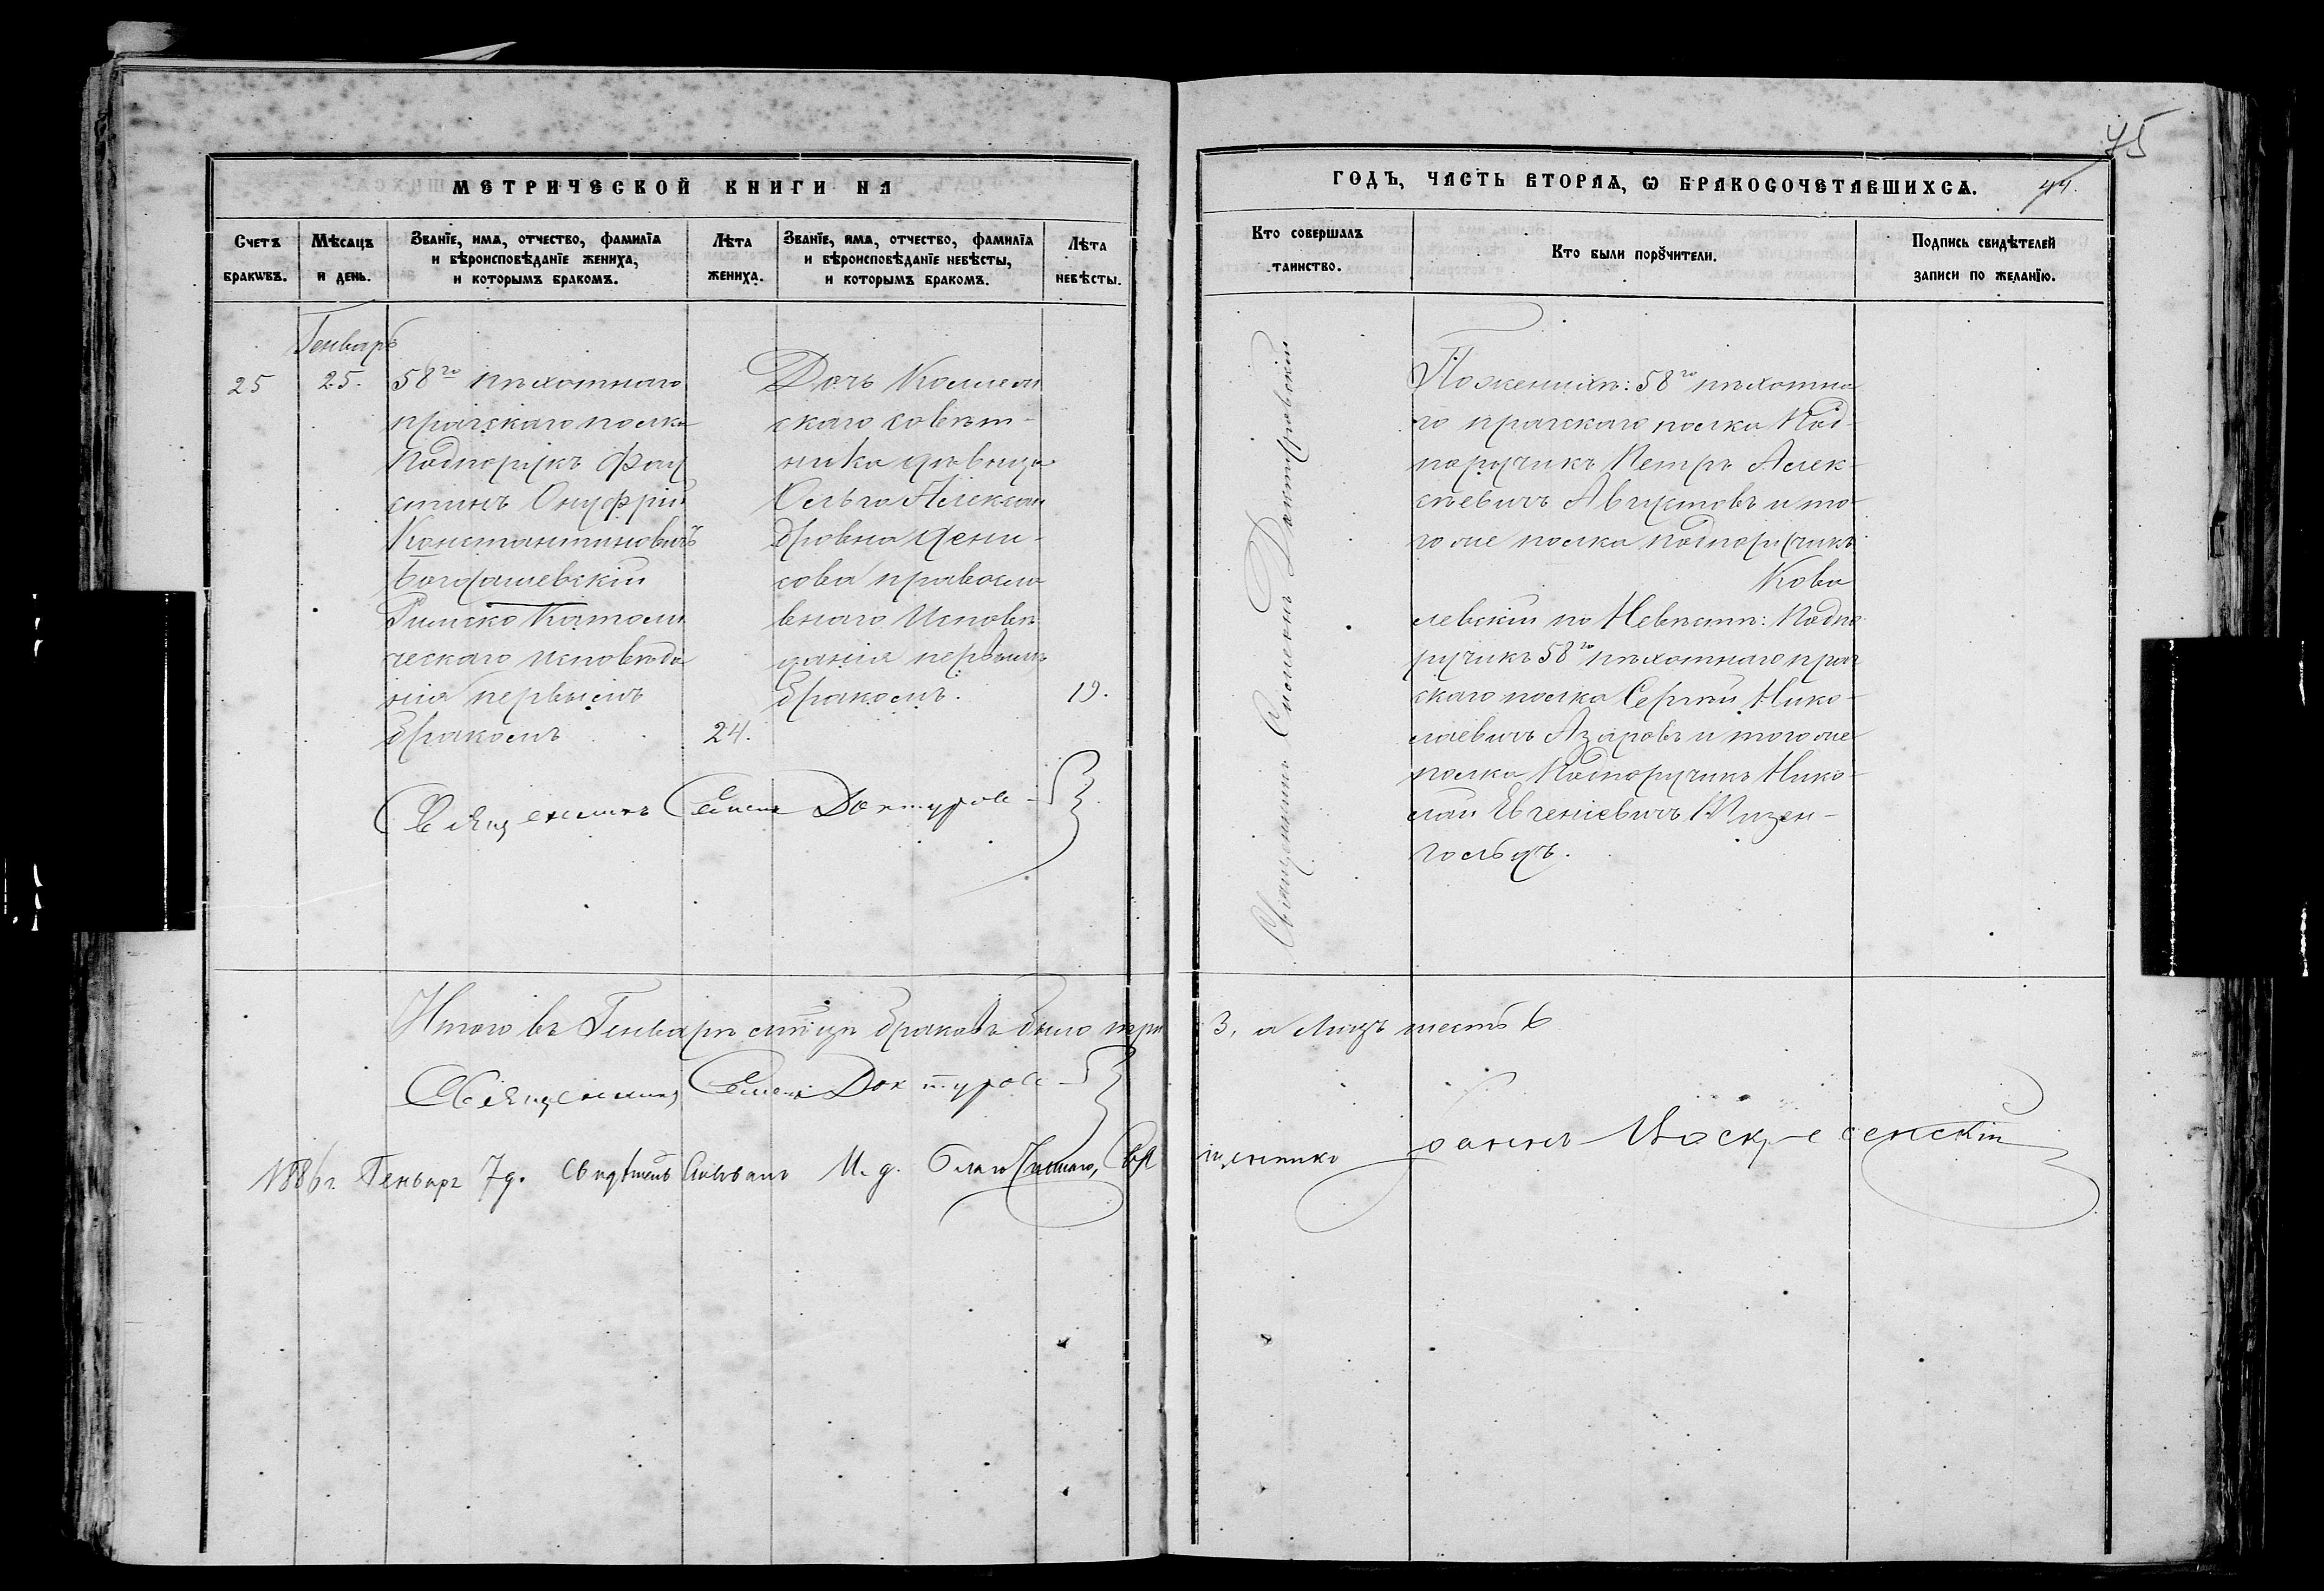 75
МЕТРИЧЕСКОЙ КНИГИ НА
ГОДЪ, ЧАСТЬ ВТОРАѦ, Ѡ БРАКОСОЧЕТАВШИХСѦ.
44.
Счетъ бракѡвъ.
Мѣсѧцъ и день.
Званїе, имѧ, отчество, фамилїа
и вѣроисповѣданїе жениха,
и которымъ бракомъ.
Лѣта жениха.
Званїе, имѧ, отчество, фамилїа
и вѣроисповѣданїе невѣсты,
и которымъ бракомъ.
Лѣта невѣсты.
Кто совершалъ таинство.
Кто были порꙋчители.
Подпись свидѣтелей
записи по желанїю.
Генварь
25
25.
58го пѣхотнаго
прагскаго полка
Подпорукъ Фау
стинъ Онуфрій
Константиновичъ
Богдашевскій
Римско Католи
ческаго исповѣда
нія первымъ
бракомъ
24.
Дочь Коллеж
скаго совѣт-
ника дѣвица
Ольга Алексан
дровна Дени-
сова правосла
внаго Исповѣ
данія первымъ
бракомъ.
19.
Священникъ Симеонъ Доктуровскій
По женихѣ: 58го пѣхотна
го прагскаго полка Под-
поручикъ Петръ Алек-
сѣевичъ Августовъ и то-
го же полка подпоручикъ
Кова
левскій по Невѣстѣ: Подпо
ручикъ 58го пѣхотнаго праг
скаго полка Сергѣй Нико-
лаевичъ Азаровъ и того же
полка Подпоручикъ Нико-
лай Евгеніевичъ
гольцъ.
Священникъ Симеонъ Доктуров
Итого въ Генварѣ мѣсяцѣ браковъ было три
3, а Лицъ шесть 6
Священникъ Симеонъ Доктуров
1886 г. Генваря 7 д. Свидѣтельствовалъ И. д. Благочиннаго, Свя
щенникъ Іоаннъ Воскресенскій